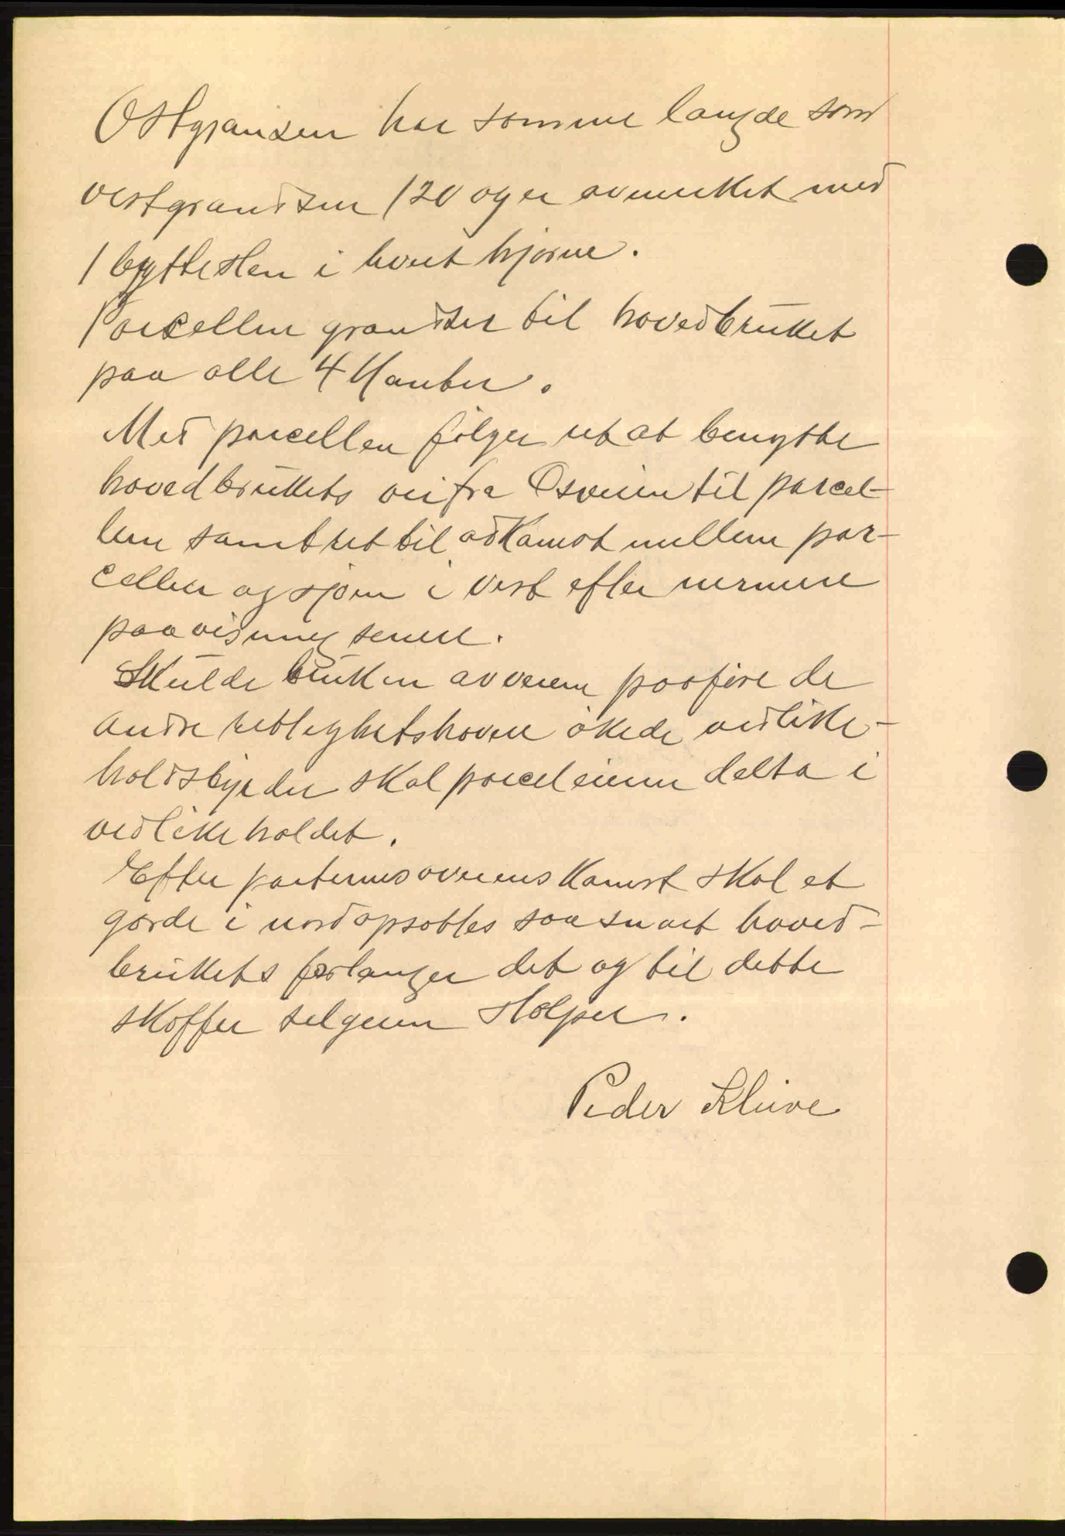 Østgrandsen har samme længde som
vestgrandsen 120 og er avmerket med
1 byttesten i hvert hjørne.
Parcellen grandser til hovedbruket
paa alle 4 Kanter.
Med parcellen følger ret at benytte
hovedbrukets vei fra Osveien til parcel-
len samt ret til adkomst mellem par-
cellen og sjøen i vest efter nermere
paavisning senere.
Skulde bruken av veiene paaføre de
andre rettighetshavere økede vedlike-
holdsbyrder skal parceleieren delta i
vedlikeholdet.
Efter parternes overenskomst skal et
gjærde i nord opsættes saa snart hoved-
brukets forlanger det og til dette
skaffer selgeren stolper.
Peder Kleive